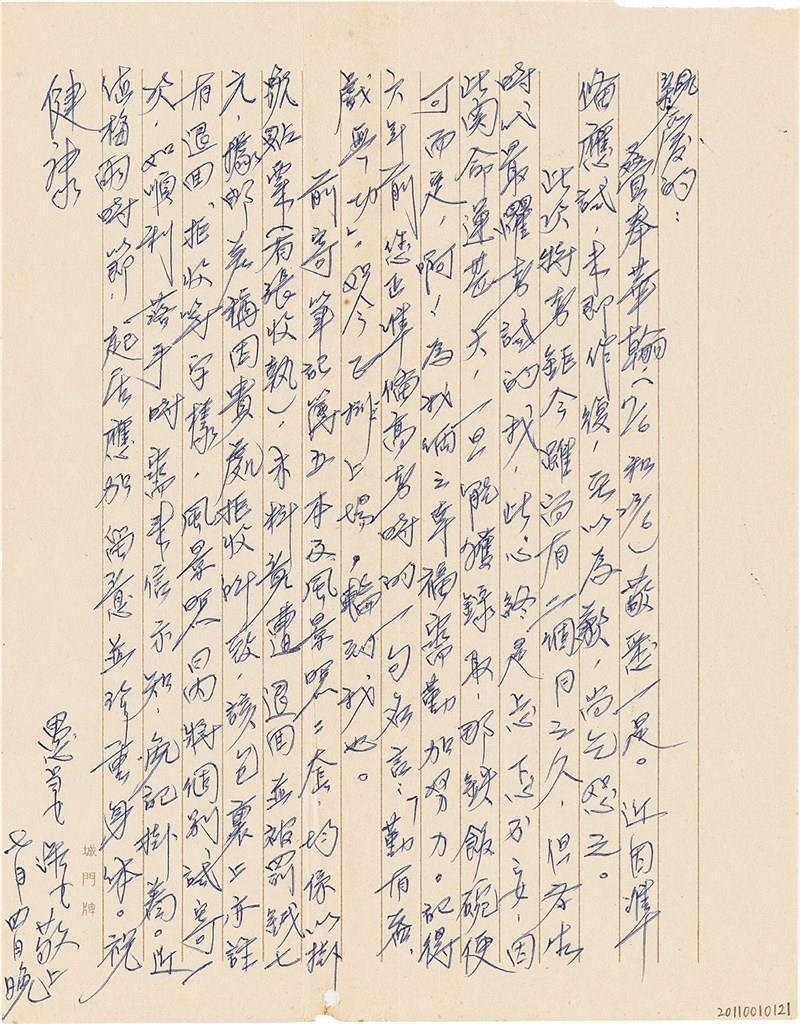 親愛的：
疊奉華翰（7/6和23/6）敬悉一是。近因準
備應試，未即作復，至以為歉，尚乞恕之。
此次將考鉅今雖尚有二個月之久，但為生
時以最懼考試的我，此心終是忐忑不安，因
此關命運甚大，一旦能獲錄取，那鉄飯碗便
可而足，啊！為我倆之幸福需勤加努力。記得
六年前您正準備高考時的一句名言：「勤有益，
戲無功」，如今已掛上場，輪到我也。
前寄筆記簿五本及風景照二套，均係以掛
號點寄（有張收執），未料竟遭退回並被罰錢七
元，據郵差稱因貴處拒收所致，該包裹上亦註
有退回、拒收等字樣，風景照日內將個別試寄一
次，如順利落手時需來信示知，免記掛着。近
值梅雨時節，起居應加留意並珍重身体。祝
健康
愚弟 敬上
七月四日晚
城門牌
20110010121